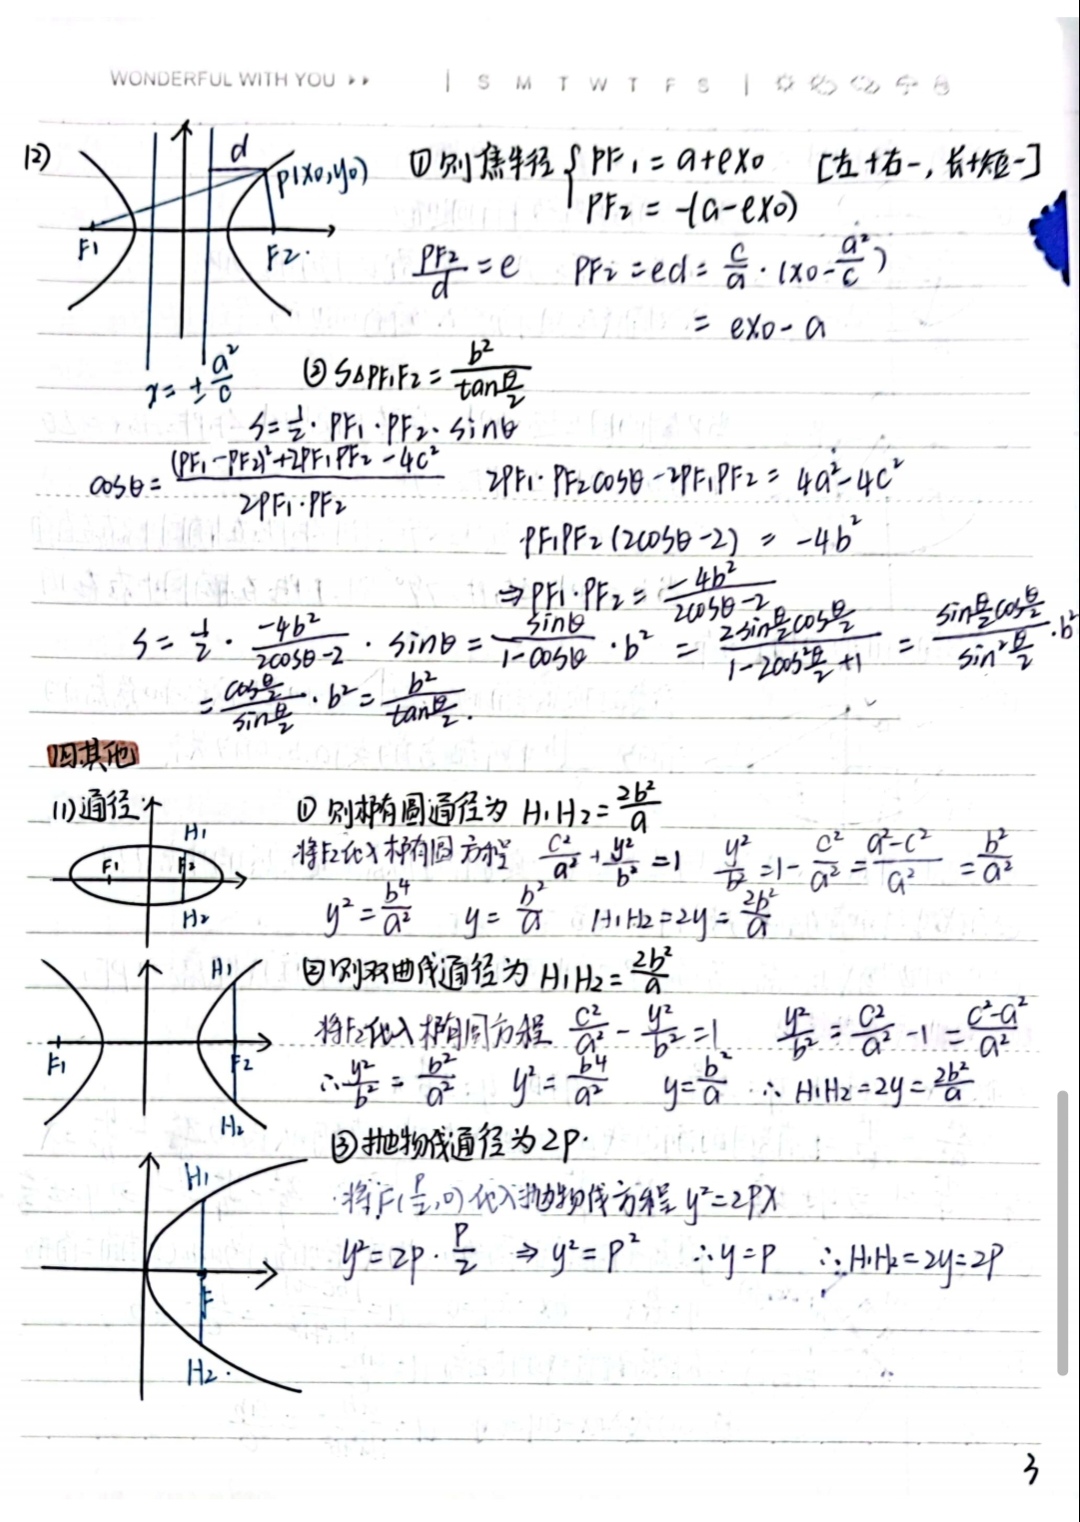 WONDERFUL WITH YOU | S M T W T F S |
(2) d P(x0,y0) F1 F2
x=±a²/c
①则焦半径{PF1=a+ex0 [左+右-,长+短-]
PF2=-(a-ex0)
PF2/d=e PF2=ed=c/a·(x0-a²/c)
=ex0-a
②S△PF1F2=b²/tanθ/2
S=1/2·PF1·PF2·sinθ
cosθ=(PF1-PF2)²+2PF1PF2-4c²/2PF1·PF2 2PF1·PF2cosθ-2PF1PF2=4a²-4c²
PF1PF2(2cosθ-2)=-4b²
⇒PF1·PF2=-4b²/2cosθ-2
S=1/2·-4b²/2cosθ-2·sinθ=sinθ/1-cosθ·b²=2sinθ/2cosθ/2/1-2cos²θ/2+1=sinθ/2cosθ/2/sin²θ/2·b²
=cosθ/2/sinθ/2·b²=b²/tanθ/2.
四其他
(1)通径 ①则椭圆通径为H1H2=2b²/a
H1 F1 F2 H2
将F2代入椭圆方程 c²/a²+y²/b²=1 y²/b²=1-c²/a²=a²-c²/a²=b²/a²
y²=b⁴/a² y=b²/a H1H2=2y=2b²/a
②则双曲线通径为H1H2=2b²/a
H1 F1 F2 H2
将F2代入椭圆方程 c²/a²-y²/b²=1 y²/b²=c²/a²-1=c²-a²/a²
∴y²/b²=b²/a² y²=b⁴/a² y=b²/a ∴H1H2=2y=2b²/a
③抛物线通径为2P.
H1 F H2
将F(P/2,0)代入抛物线方程y²=2PX
y²=2P·P/2 ⇒y²=P² ∴y=P ∴H1H2=2y=2P
3